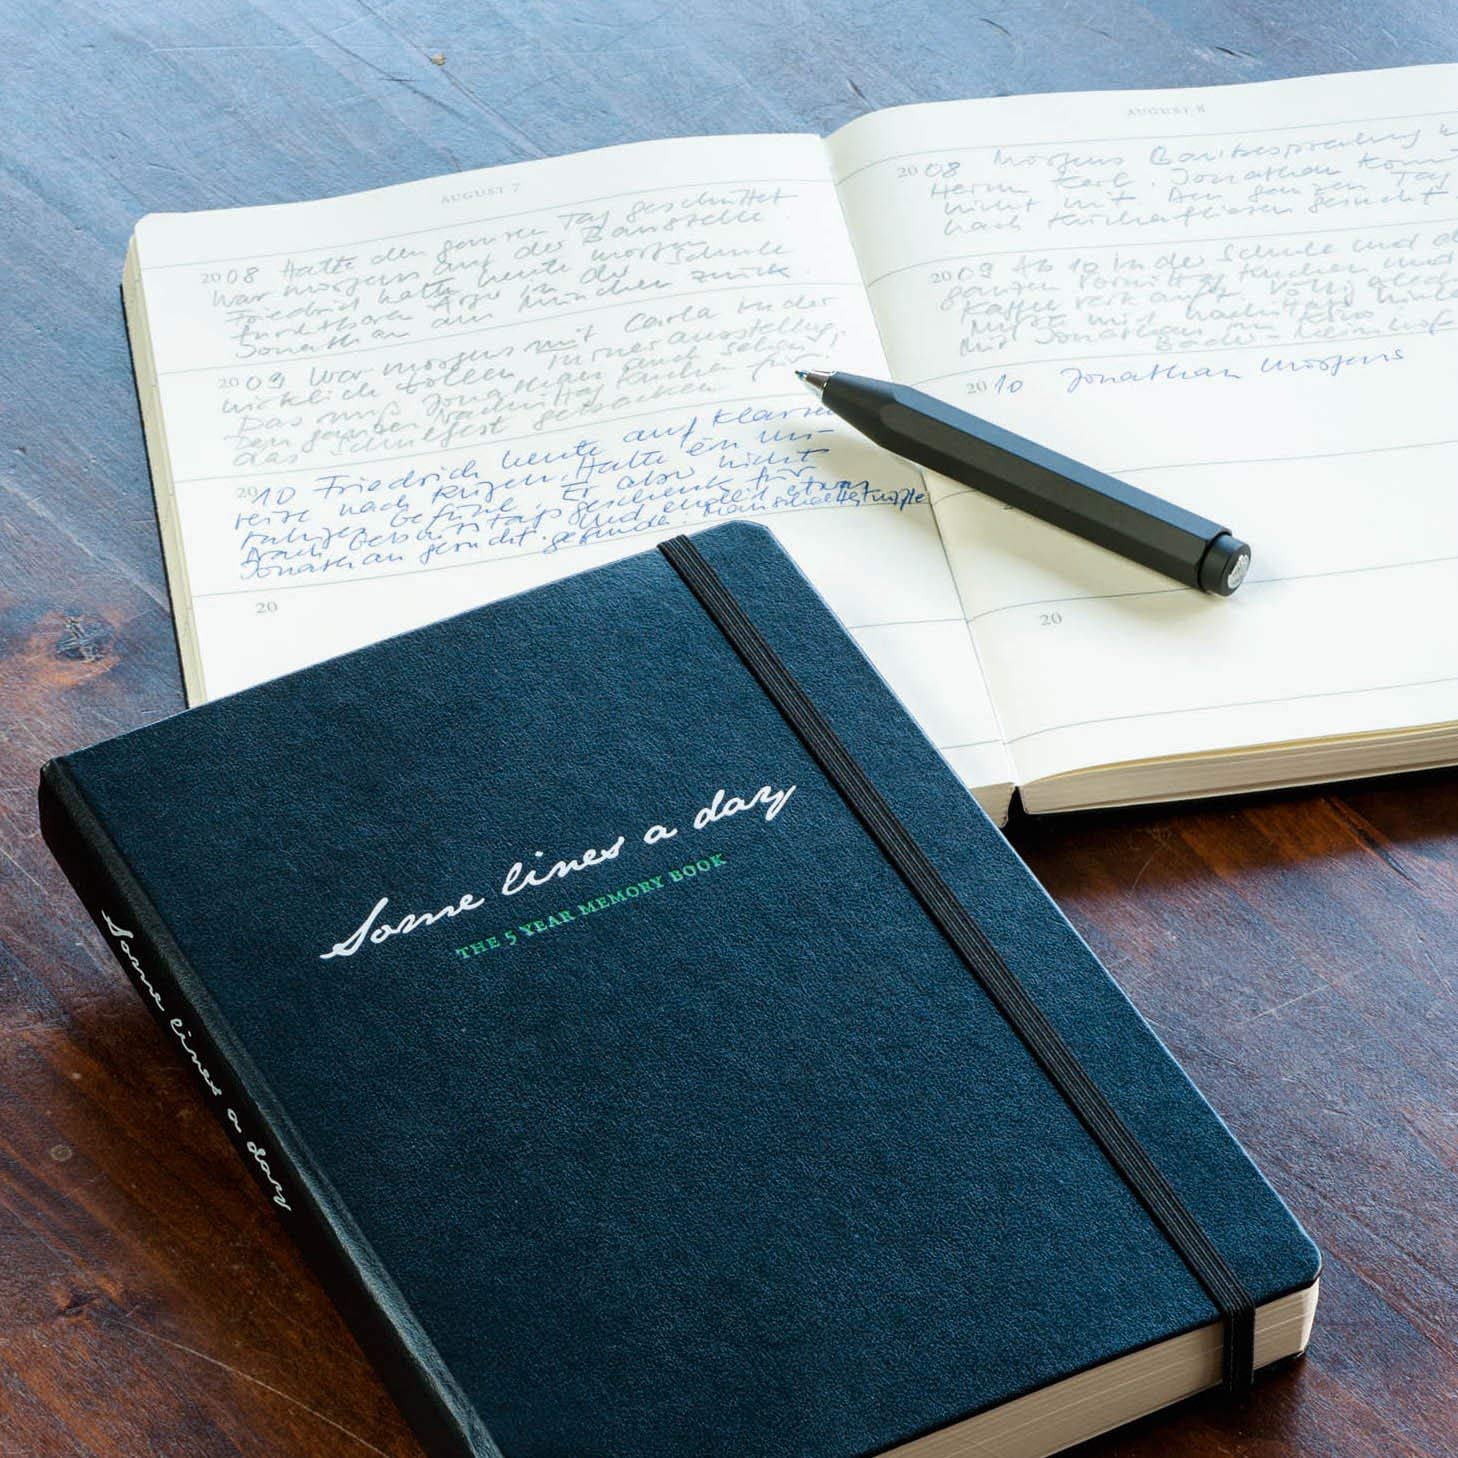 AUGUST 7
2008 Hatte den ganzen Tag geschnittet
War morgens auf der Baustelle.
Friedrich hatte heute morgen
furchtbaren Ärger in der Schule
Jonathan aus München zurück.
2009 War morgens mit Carla in der
wirklich tollen Turnerausstellung.
Das muß Jonathan auch sehen!
Den ganzen Nachmittag Kuchen für
das Schulfest gebacken.
2010 Friedrich heute auf Klassen
reise nach Rügen. Hatte ein un-
ruhiges Gefühl. Er aber nicht.
Nach Geburtstagsgeschenk für
Jonathan gesucht und endlich etwas
gefunden. Manschettenknöpfe
20
AUGUST 8
2008 Morgens Baubesprechung
Herrn Kerl. Jonathan kommt
nicht mit. Den ganzen Tag
nach Küchenfliesen gesucht
2009 Ab 10 in der Schule und
ganzen Vormittag Kuchen und
Kaffee verkauft.
Mit Jonathan im
2010 Jonathan morgens
20
Some lines a day
THE 5 YEAR MEMORY BOOK
Some lines a day